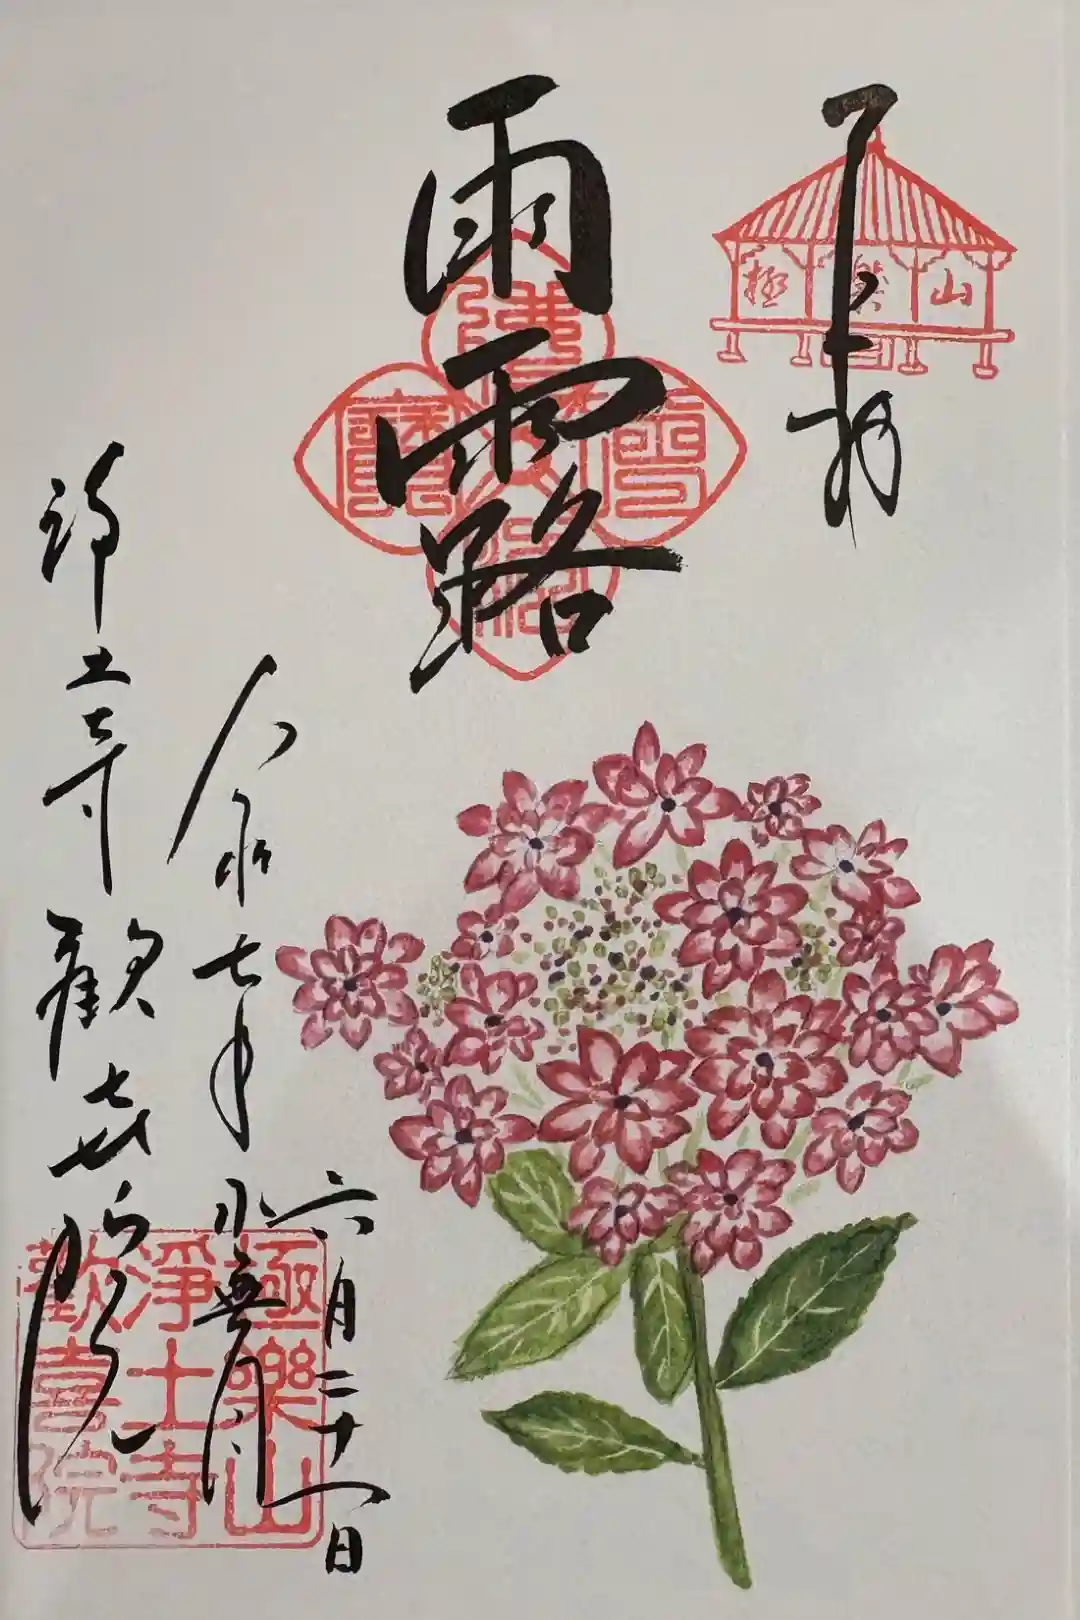 奉拝
極樂山
雨露
六月二十一日
令和七年 水無月
浄土寺 歓喜院
極樂山
淨土寺
歡喜院